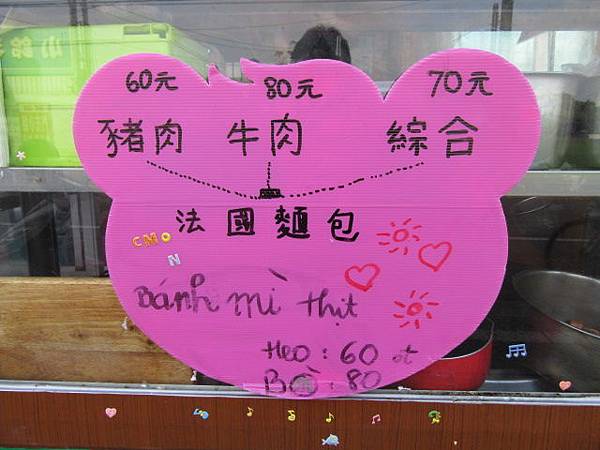 60元 80元 70元
豬肉 牛肉 綜合
法國麵包
CMO
N
Bánh mì thịt
Heo : 60 đt
Bò : 80